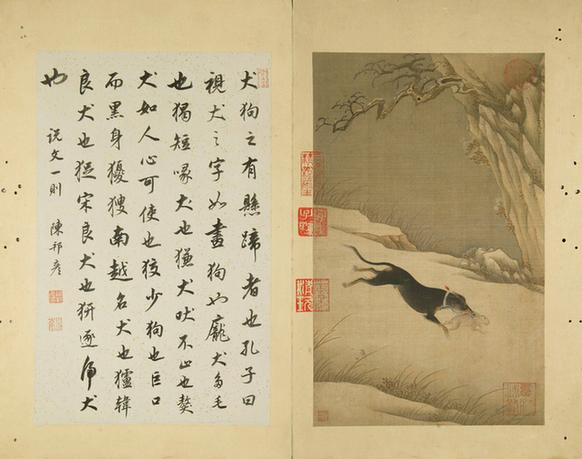 犬狗之有懸蹄者也孔子曰
視犬之字如畫狗也龐犬多毛
也猲短喙犬也㺌犬吠不止也獒
犬如人心可使也狡少狗也巨口
而黑身獿獀南越名犬也獹韓
良犬也宋良犬也逐虎犬
也
說文一則 陳邦彥